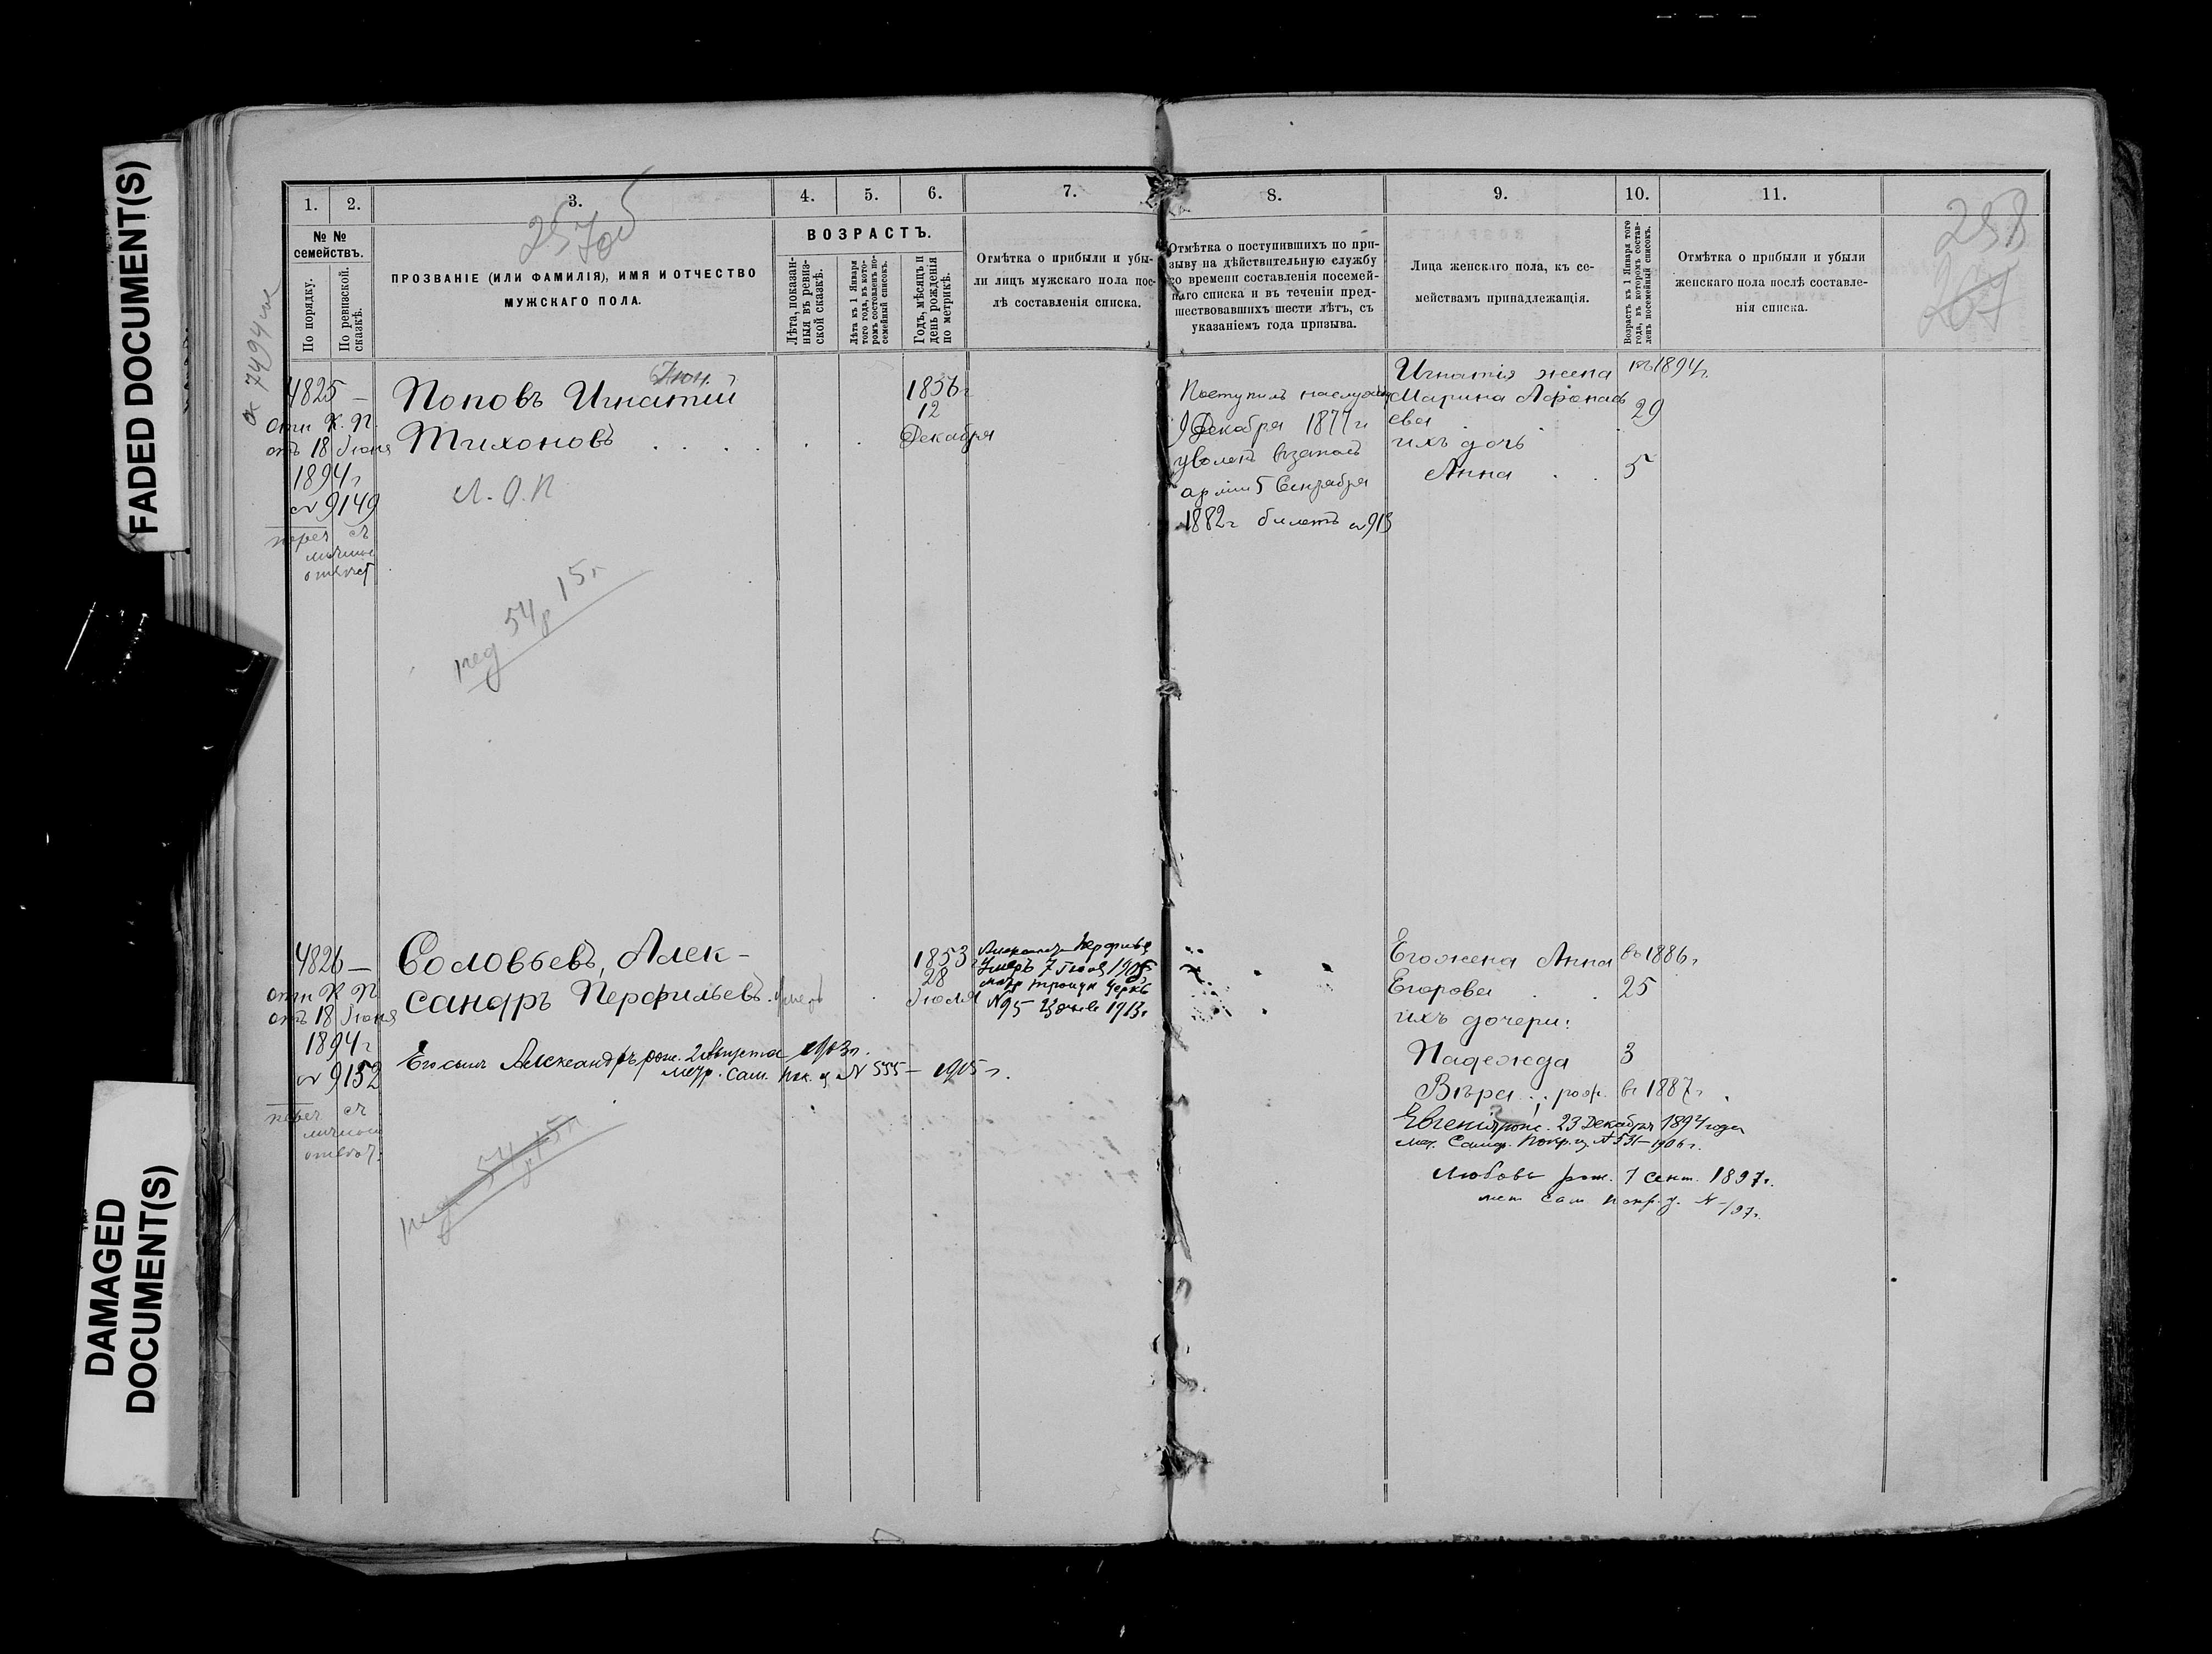 FADED DOCUMENT(S)
DAMAGED
DOCUMENT(S)
1.
2.
3.
4.
5.
6.
7.
8.
9.
10.
11.
258
№ №
семействъ.
По порядку.
По ревизской
сказкѣ.
ПРОЗВАНІЕ (ИЛИ ФАМИЛІЯ), ИМЯ И ОТЧЕСТВО
МУЖСКАГО ПОЛА.
ВОЗРАСТЪ.
Лѣта, показан-
ныя въ ревиз-
ской сказкѣ.
Лѣта къ 1 Января
того года, въ кото-
ромъ составленъ по-
семейный списокъ.
Годъ, мѣсяцъ и
день рожденія
по метрикѣ.
Отмѣтка о прибыли и убы-
ли лицъ мужскаго пола пос-
лѣ составленія списка.
Отмѣтка о поступившихъ по при-
зыву на дѣйствительную службу
со времени составленія посемей-
наго списка и въ теченіи пред-
шествовавшихъ шести лѣтъ, съ
указаніемъ года призыва.
Лица женскаго пола, къ се-
мействамъ принадлежащія.
Возрастъ къ 1 Января того
года, въ которомъ состав-
ленъ посемейный списокъ.
Отмѣтка о прибыли и убыли
женскаго пола послѣ составле-
нія списка.
4825 —
отн К. П.
отъ 18 Іюня
1894 г
№ 9149
переч съ
личной
отвѣт
Поповъ Игнатій
Тихоновъ
Л. О. П
54 р 15 к
1856 г
12
Декабря
Поступилъ на службу
9 Декабря 1877 г
уволенъ въ запасъ
арміи 5 Сентября
1882 г билетъ № 913
Игнатія жена
Марина Афонась
ева
ихъ дочь
Анна
въ 1894 г.
29
5
4826 —
отн К П
отъ 18 Іюня
1894 г
№ 9152
переч съ
личной
отвѣт.
Соловьевъ, Алек-
сандръ Перфильевъ. умеръ
Его сынъ Александръ рож. 2 Августа 1903 г.
метр. Сам. Пок. ц № 555 — 1915 г.
54 р 15 к
1853 г
28
Іюля
Александръ Перфильев
Умеръ 7 Іюля 1908
метр Троицк Церкв
№ 95 1913 г
Его жена Анна
Егорова
ихъ дочери:
Надежда
Вѣра рож. въ 1887 г.
въ 1886 г
25
3
Евгенія рож. 23 Декабря 1894 года
мет. Самар. Покр. ц № 531 — 1906 г.
Любовь рож. 7 Сент. 1897 г.
мет Сам Покр. ц. № — /97 г.